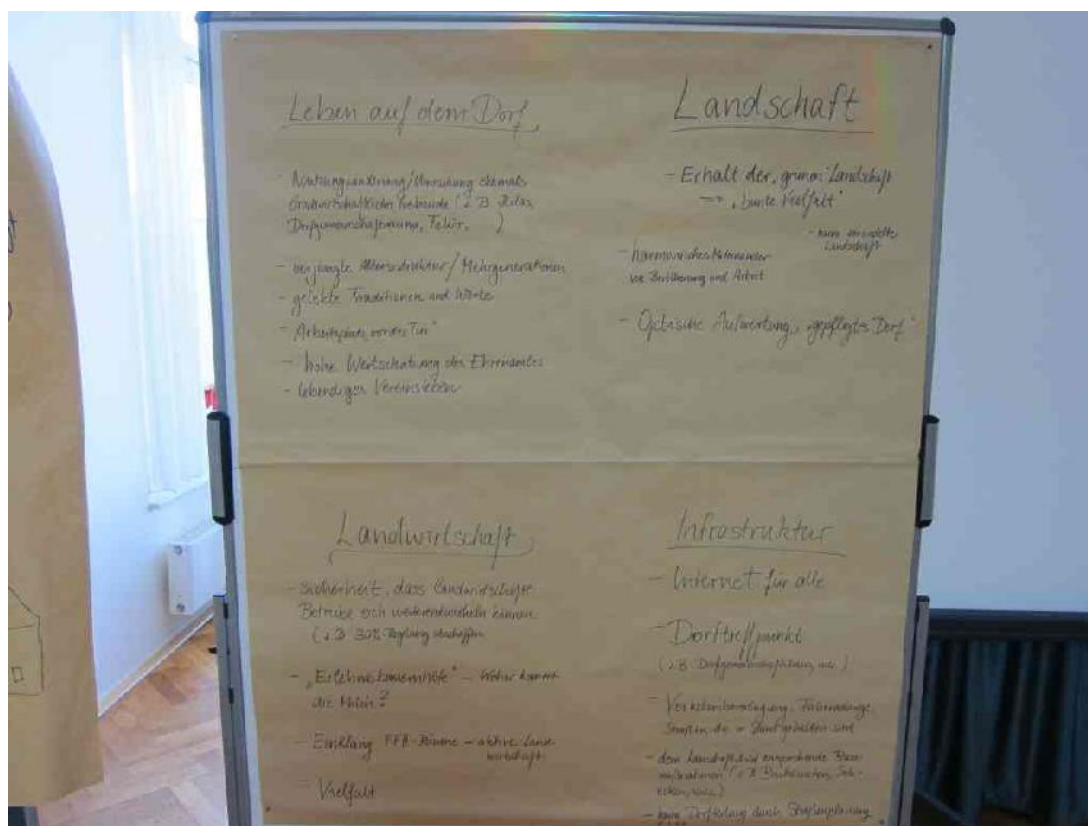 Leben auf dem Dorf
- Nutzungsänderung/Umnutzung ehemals
landwirtschaftlicher Gebäude (z.B.
Dorfgemeinschafts
- Altersstruktur/Mehrgenerationen
- gelebte Traditionen und Werte
- "Arbeitsplatz vor der Tür"
- hohe Wertschätzung des Ehrenamtes
- lebendiges Vereinsleben
Landschaft
- Erhalt der "grünen" Landschaft
"bunte Vielfalt"
- keine
Landschaft
- harmonisches Miteinander
von Bevölkerung und Arbeit
- Optische Aufwertung, "gepflegtes Dorf"
Landwirtschaft
- Sicherheit, dass landwirtschaftl.
Betriebe sich weiterentwickeln können
(z.B. 30% Regelung abschaffen
- "Erlebnisbauernhöfe" - Woher kommt
die Milch?
- Einklang - aktive Land-
wirtschaft
- Vielfalt
Infrastruktur
- Internet für alle
- Dorftreffpunkt
(z.B. Dorfgemeinschaftshaus, usw.)
- Verkehrsberuhigung,
Straßen, die
- dem Landschaftsbild entsprechende Bau-
maßnahmen (z.B.
- keine durch Straßenplanung